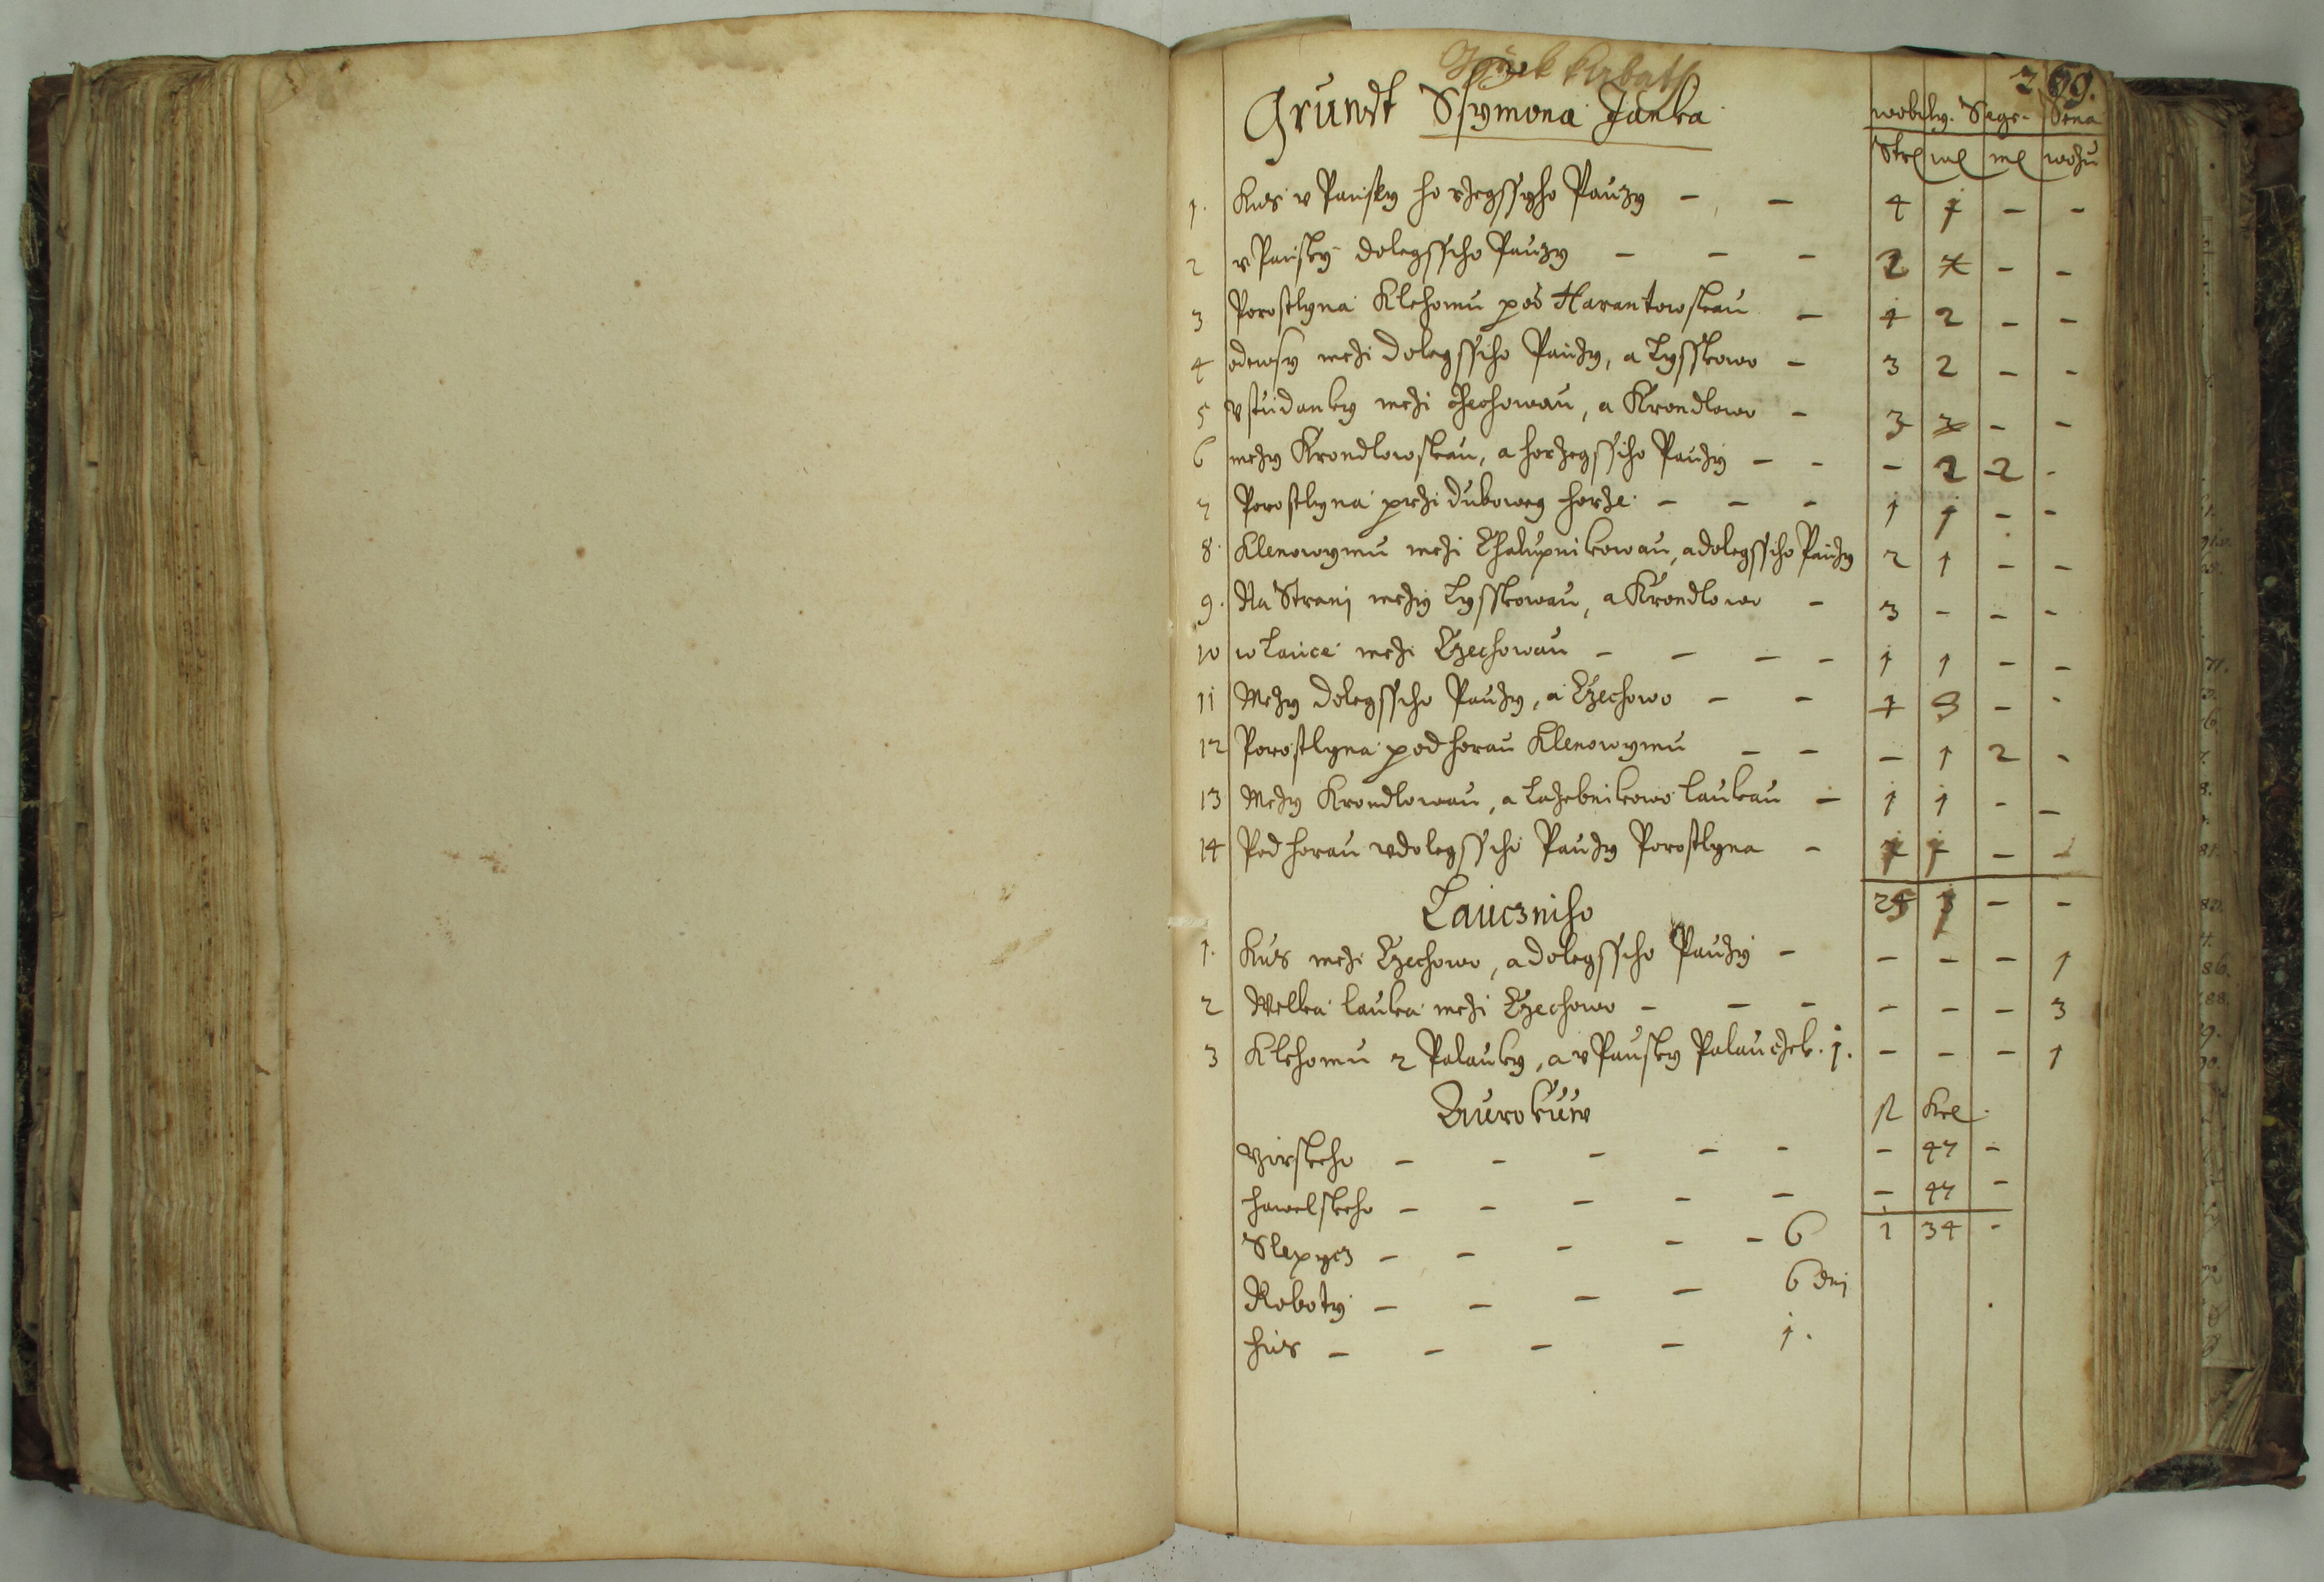 299.
Grundt Ssymona Janka
wobily. Sege- Sena
Str wl ml wozu
1. Kus v Pausky horzegssyho Pauzy - - 4 1 - -
2 v Pausky dolegssiho Pauzy - - - 2 - -
3 Porostlyna Klehomu pod Harantowskau - 1 2 - -
4 odewsy mezi dolegssiho Pauzy, a Lysskowo - 3 2 - -
5 v studanky mezi Czechowau, a Krondlowo - 3 - -
6 mezy Krondlowskau, a horzegssiho Pauzy - - - 2 2 -
7 Porostlyna przi duboweg horze - - - 1 1 - -
8. Klenowymu mezi Chalupnikowau, a dolegssiho Pauzy 2 1 - -
9. Na Strani mezy Lysskowau, a Krondlowo - 3 - - -
10 w Lauce mezi Czechowau - - - - 1 1 - -
11 Mezy dolegssiho Pauzy, a Czechowo - - 1 3 - -
12 Porostlyna pod horau Klenowymu - - - 1 2 -
13 Mezy Krondlowau, a Lazebnikowo laukau - 1 1 - -
14 Pod horau v dolegssiho Pauzy Porostlyna - 1 1 - -
Lauczniho 25 1 - -
1. Kus mezi Czechowo, a dolegssiho Pauzy - - - - 1
2 Welka lauka mezi Czechowo - - - - - - 3
3 Klehomu 2 Palauky, a v Pausky Palauczek. 1. - - - 1
Aurokuw
Girskeho - - - - - - 47 -
hawelskeho - - - - - - 47 -
Slepycz - - - - - 6 1 34 -
Roboty - - - - 6 dni
hus - - - - 1.